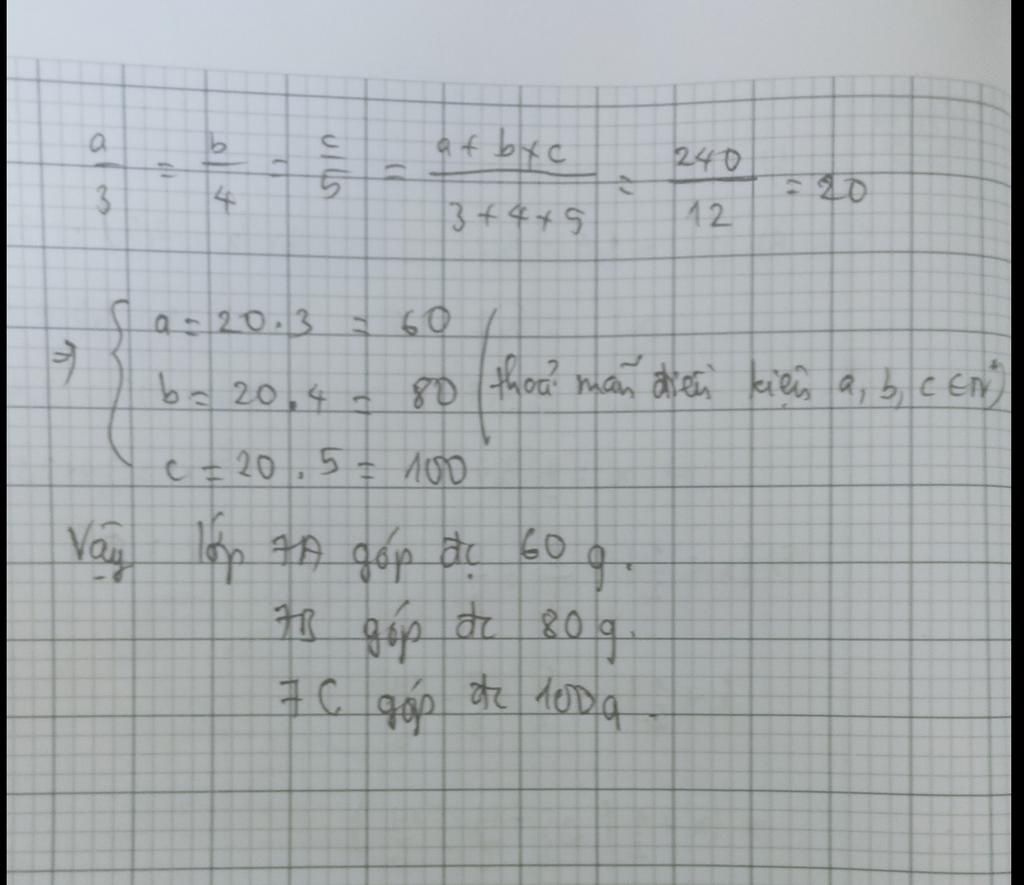 a/3 = b/4 = c/5 = a + b + c / 3 + 4 + 5 = 240/12 = 20
⇒ { a = 20 . 3 = 60
b = 20 . 4 = 80 (thoả mãn điều kiện a, b, c ∈ N*)
c = 20 . 5 = 100
Vậy lớp 7A góp đc 60 g.
7B góp đc 80 g.
7C góp đc 100 g.